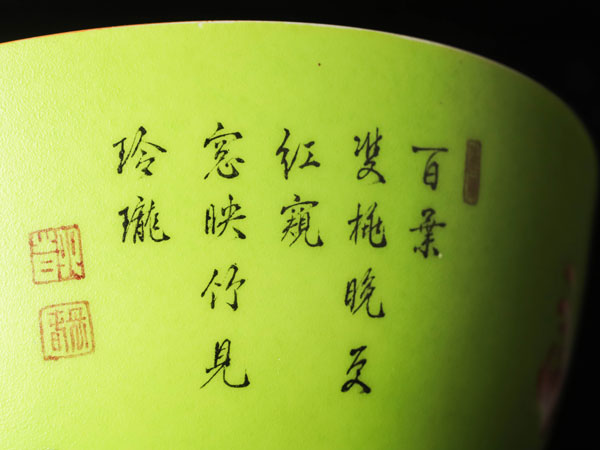 百葉
雙桃晚更
紅窺
窓映竹見
玲瓏